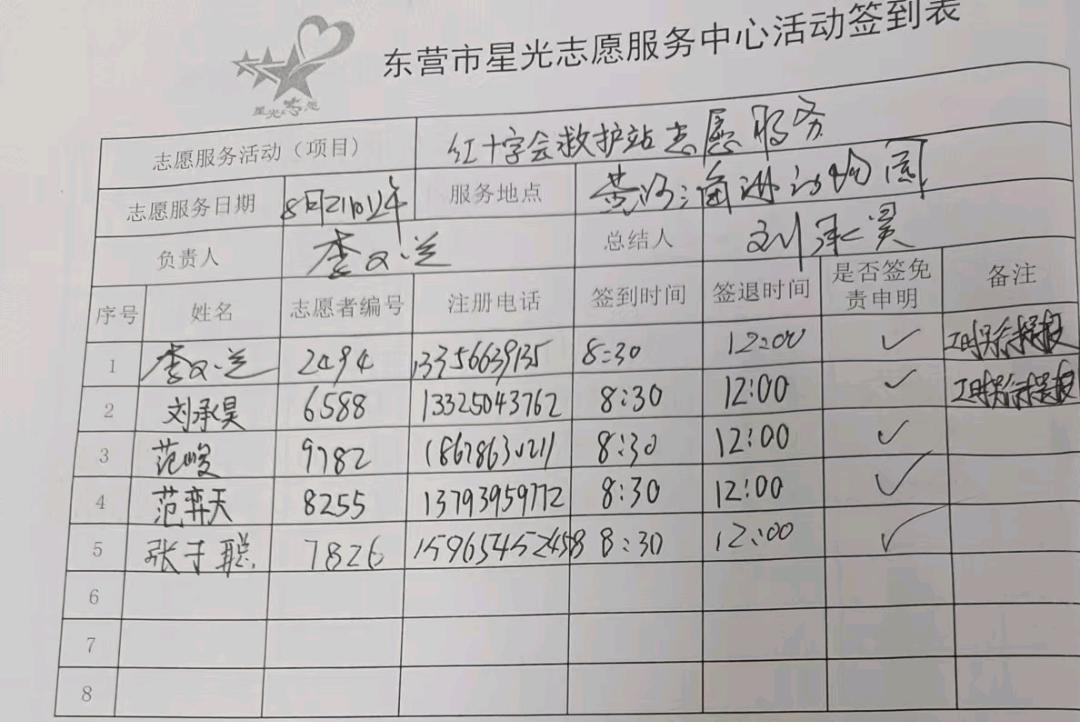 星光志愿
东营市星光志愿服务中心活动签到表
志愿服务活动（项目） 红十字会救护站志愿服务
志愿服务日期 8月21日 服务地点 动物园
负责人 李文兰 总结人 刘承昊
序号 姓名 志愿者编号 注册电话 签到时间 签退时间 是否签免责申明 备注
1 李文兰 2494 13356639135 8:30 12:00 ✓
2 刘承昊 6588 13325043762 8:30 12:00 ✓
3 范峻 9782 18678630211 8:30 12:00 ✓
4 范弈天 8255 13793959772 8:30 12:00 ✓
5 张于聪 7826 15965452458 8:30 12:00 ✓
6
7
8